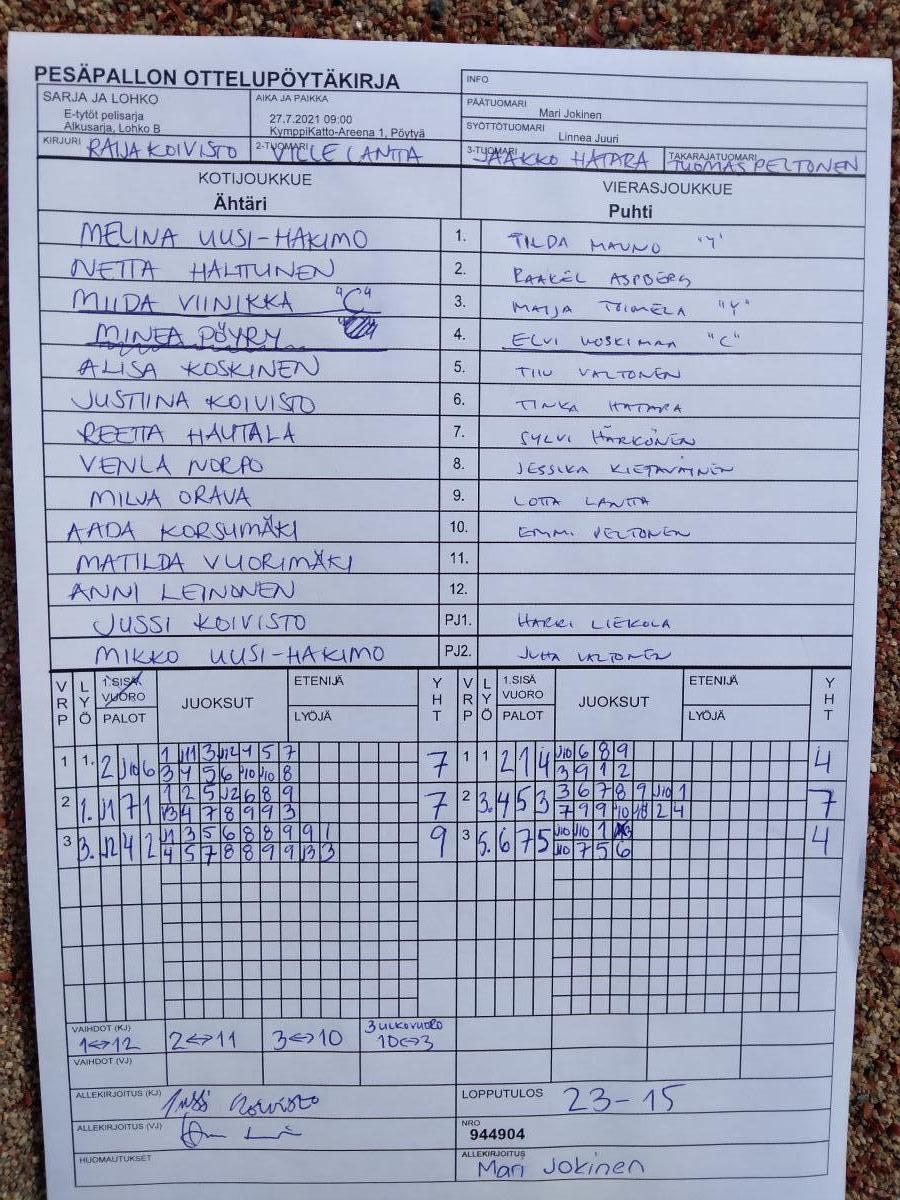 PESÄPALLON OTTELUPÖYTÄKIRJA
INFO
SARJA JA LOHKO
E-tytöt pelisarja
Alkusarja, Lohko B
AIKA JA PAIKKA
27.7.2021 09:00
KymppiKatto-Areena 1, Pöytyä
PÄÄTUOMARI
Mari Jokinen
SYÖTTÖTUOMARI
Linnea Juuri
KIRJURI RAIJA KOIVISTO
2-TUOMARI VILLE LANTTA
3-TUOMARI JAAKKO HATARA
TAKARAJATUOMARI TUOMAS PELTONEN
KOTIJOUKKUE
Ähtäri
VIERASJOUKKUE
Puhti
MELINA UUSI-HAKIMO 1. TILDA MAUNO "Y"
NETTA HALTTUNEN 2. RAAKEL ASPBERG
MIIDA VIINIKKA "C" 3. MAIJA TOIMELA "Y"
MINEA PÖYRY 4. ELVI KOSKIMAA "C"
ALISA KOSKINEN 5. TIIU VALTONEN
JUSTIINA KOIVISTO 6. TINKA HATARA
REETTA HAUTALA 7. SYLVI HÄRKÖNEN
VENLA NORPO 8. JESSIKA KIETÄVÄINEN
MILVA ORAVA 9. LOTTA LANTTA
AADA KORSUMÄKI 10. EMMI PELTONEN
MATILDA VUORIMÄKI 11.
ANNI LEINONEN 12.
JUSSI KOIVISTO PJ1. HARRI LIEKOLA
MIKKO UUSI-HAKIMO PJ2. JUHA VALTONEN
VRP LYÖ 1.SISÄ VUORO PALOT JUOKSUT ETENIJÄ LYÖJÄ YHT VRP LYÖ 1.SISÄ VUORO PALOT JUOKSUT ETENIJÄ LYÖJÄ YHT
1 1. 2 J10 6 1 J11 3 J12 4 5 7 7 1 1 2 1 4 J10 6 8 9 4
3 4 5 6 J10 J10 8 3 9 1 2
2 1. J1 7 1 1 2 5 J2 6 8 9 7 2 3. 4 5 3 3 6 7 8 9 J10 1 7
J3 4 7 8 9 9 3 7 9 9 10 2 4
3 3. J2 4 2 J1 3 5 6 8 8 9 9 1 9 3 5. 6 7 5 J10 J10 1 4
4 5 7 8 8 9 9 J3 3 J10 7 5 6
VAIHDOT (KJ)
1↔12 2↔11 3↔10 3 ULKOVUORO 10↔3
VAIHDOT (VJ)
ALLEKIRJOITUS (KJ) Jussi Koivisto
LOPPUTULOS 23-15
ALLEKIRJOITUS (VJ)
NRO
944904
HUOMAUTUKSET
ALLEKIRJOITUS
Mari Jokinen